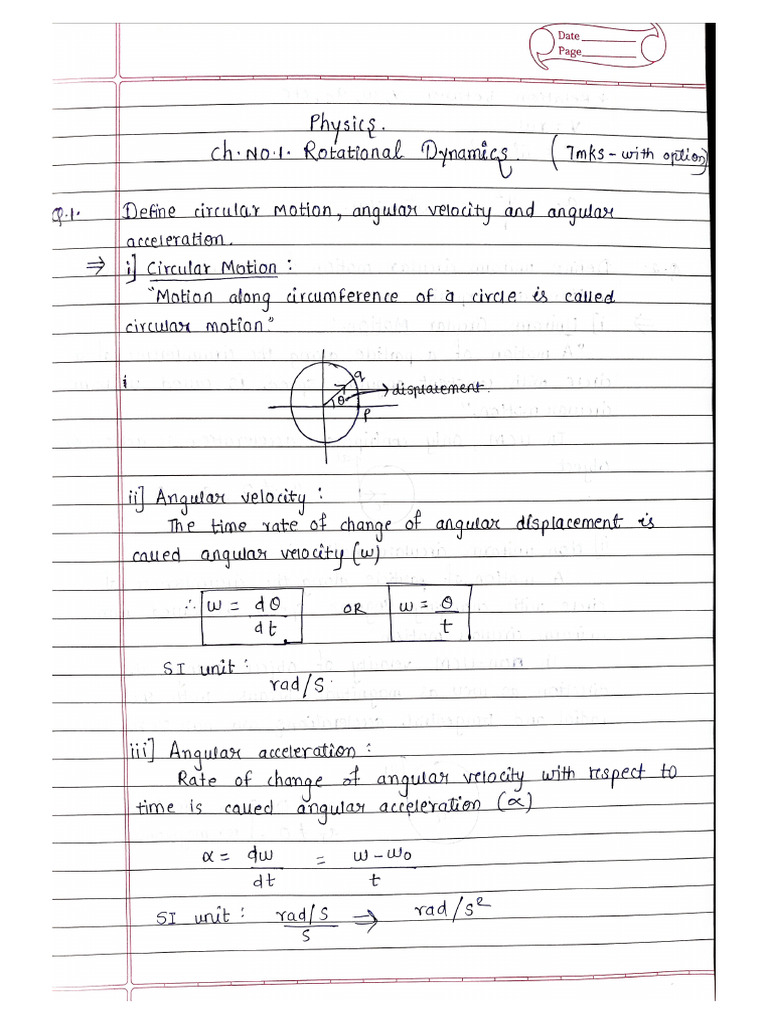 Date
Page
Physics.
Ch. No. 1. Rotational Dynamics. (7mks - with option)
Q.1. Define circular motion, angular velocity and angular
acceleration.
⇒ i] Circular Motion :
"Motion along circumference of a circle is called
circular motion."
i
q
θ → displacement.
P
ii] Angular velocity :
The time rate of change of angular displacement is
called angular velocity (w)
∴ w = dθ/dt OR w = θ/t
SI unit :
rad/s.
iii] Angular acceleration :
Rate of change of angular velocity with respect to
time is called angular acceleration (α)
α = dw/dt = w - w₀/t
SI unit : rad/s/s ⇒ rad/s²